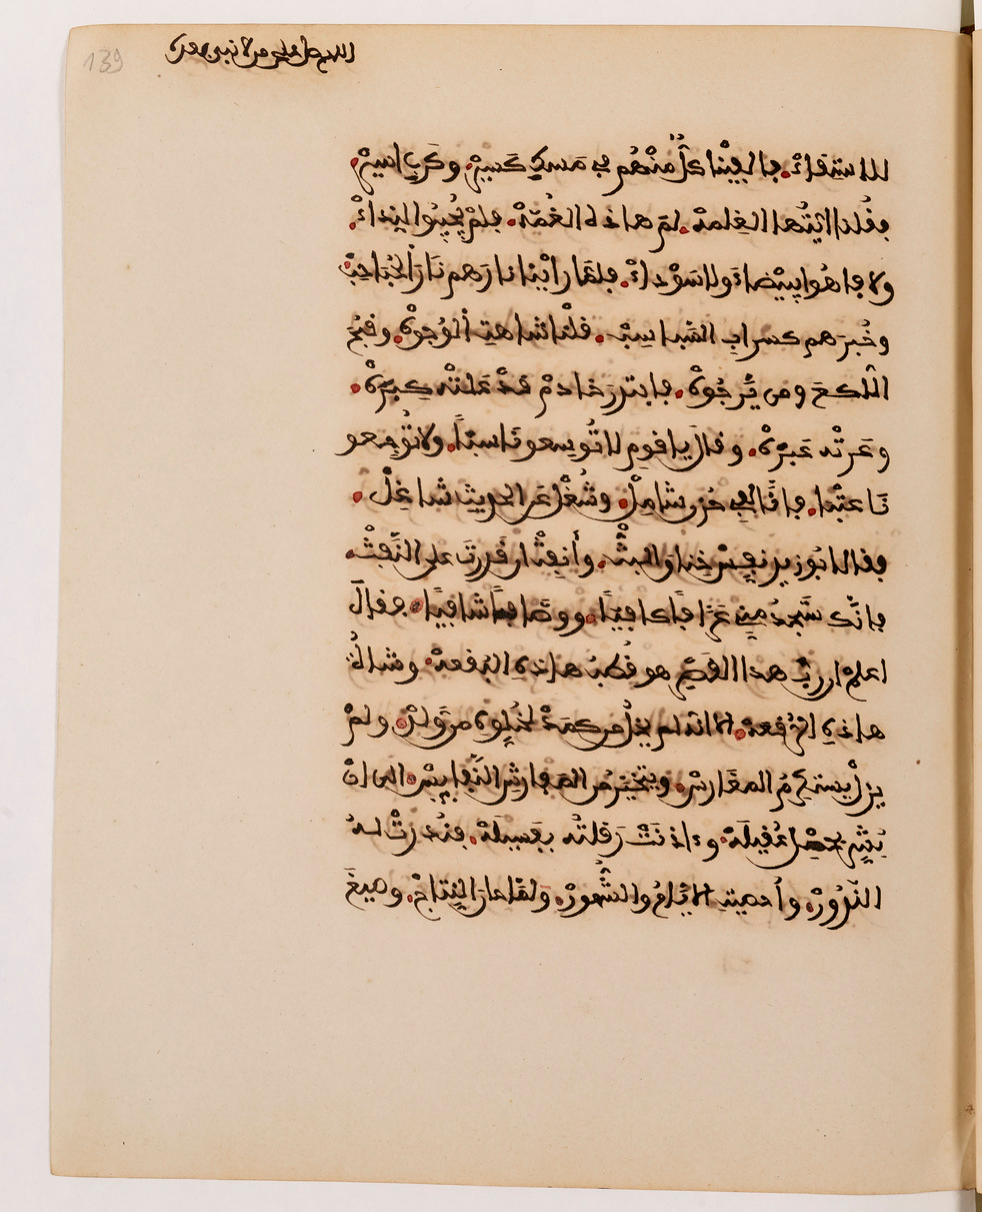 اللهم صل على من لا نبي بعده
139
للاستقراء. فالفينا كلا منهم في مسك كسير. وكرب اسير.
فقلنا ايتها الغلمة. لم هاذه الغمة. فلم يجيبوا النداء.
ولا فاهوا ببيضاء ولا سوداء. فلما راينا نارهم نار الحباحب.
وخبرهم كسراب السباسب. قلنا شاهت الوجوه. وقبح
اللكع ومن يرجوه. فابتدر خادم قد علته كبرة.
وعرته عبرة. وقال يا قوم لا توسعونا سبا. ولا توجعو
نا عتبا. فانا لفي حزن شامل. وشغل عن الحديث شاغل.
فقال ابوزيد نفس خناق البث. وانفث ان قدرت على النفث.
فانك ستجد مني عرافا كافيا. ووصافا شافيا. فقال
اعلم ان رب هذا القصر هو قطب هاذه البقعة. وشاه
هاذه الرقعة. الا انه لم يخل من كمد لخلوه من ولد. ولم
يزل يستكرم المغارس. ويتخير من المفارش النفايس. الى ان
بشر بحمل عقيلة. وءاذنت رقلته بفسيلة. فنذرت له
النذور. واحصيت الايام والشهور. ولما حان النتاج. وصيغ